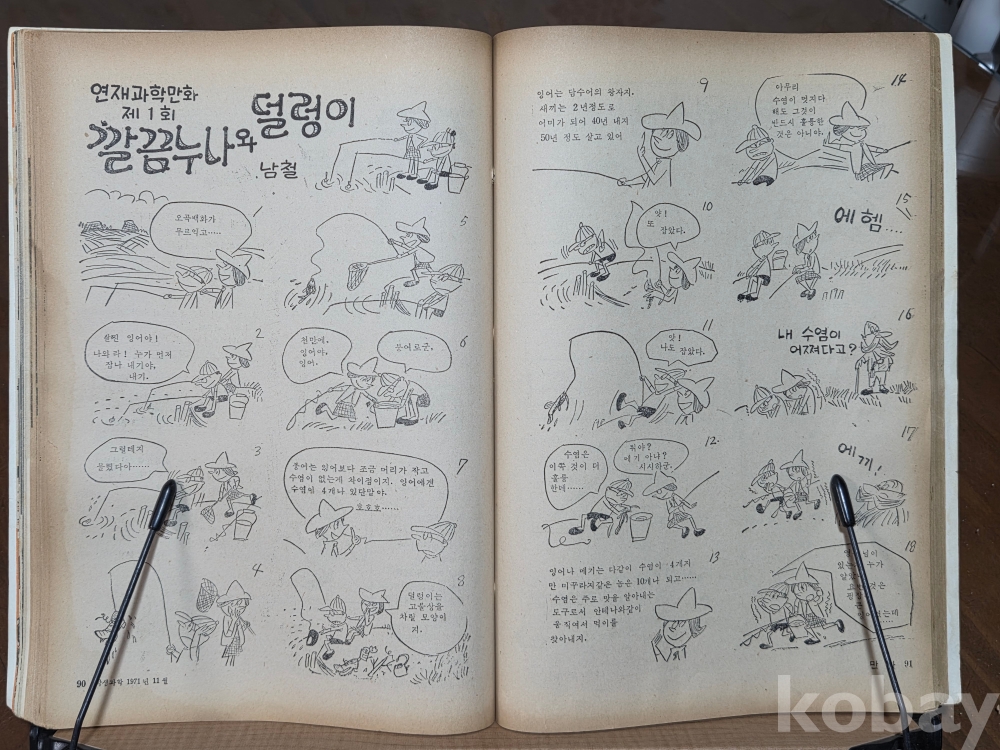 연재과학만화
제1회
깔끔누나와 덜렁이
남철
1
오곡백화가
무르익고……
2
나와라! 누가 먼저
잡나 내기야,
내기.
3
그럴테지
4
5
6
천만에,
잉어야,
잉어.
붕어로군,
7
붕어는 잉어보다 조금 머리가 작고
수염이 없는게 차이점이지. 잉어에겐
수염이 4개나 있단말야.
오호호……
8
덜렁이는
고물상을
차릴 모양이
지.
90
1971년 11월
9
잉어는 담수어의 왕자지.
새끼는 2년정도로
어미가 되어 40년 내지
50년 정도 살고 있어
10
앗!
또
잡았다.
11
앗!
나도 잡았다.
12
수염은
이쪽 것이 더
훌륭
한데……
뭐야?
메기 아냐?
시시하군.
13
잉어나 메기는 다같이 수염이 4개지
만 미꾸라지같은 놈은 10개나 되고……
수염은 주로 맛을 알아내는
도구로서 안테나와같이
움직여서 먹이를
찾아내지.
14
아무리
수염이 멋지다
해도 그것이
반드시 훌륭한
것은 아니야.
15
에헴……
16
내 수염이
어쨌다고?
17
에끼!
18
91
kobay